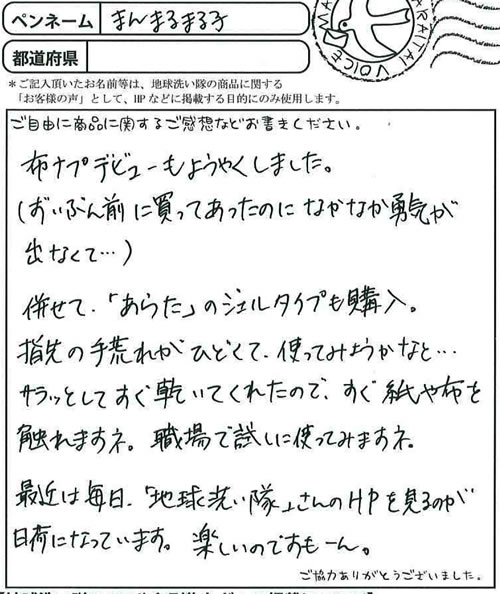 ペンネーム まんまるまる子
都道府県
ARAITAI VOICE MA
＊ご記入頂いたお名前等は、地球洗い隊の商品に関する
「お客様の声」として、HPなどに掲載する目的にのみ使用します。
ご自由に商品に関するご感想などお書きください。
布ナプデビューもようやくしました。
(ずいぶん前に買ってあったのになかなか勇気が
出なくて…)
併せて、「あらた」のジェルタイプも購入。
指先の手荒れがひどくて、使ってみようかなと…
サラッとしてすぐ乾いてくれたので、すぐ紙や布を
触れますネ。職場で試しに使ってみますネ。
最近は毎日、「地球洗い隊」さんのHPを見るのが
日荷になっています。楽しいのですもーん。
ご協力ありがとうございました。